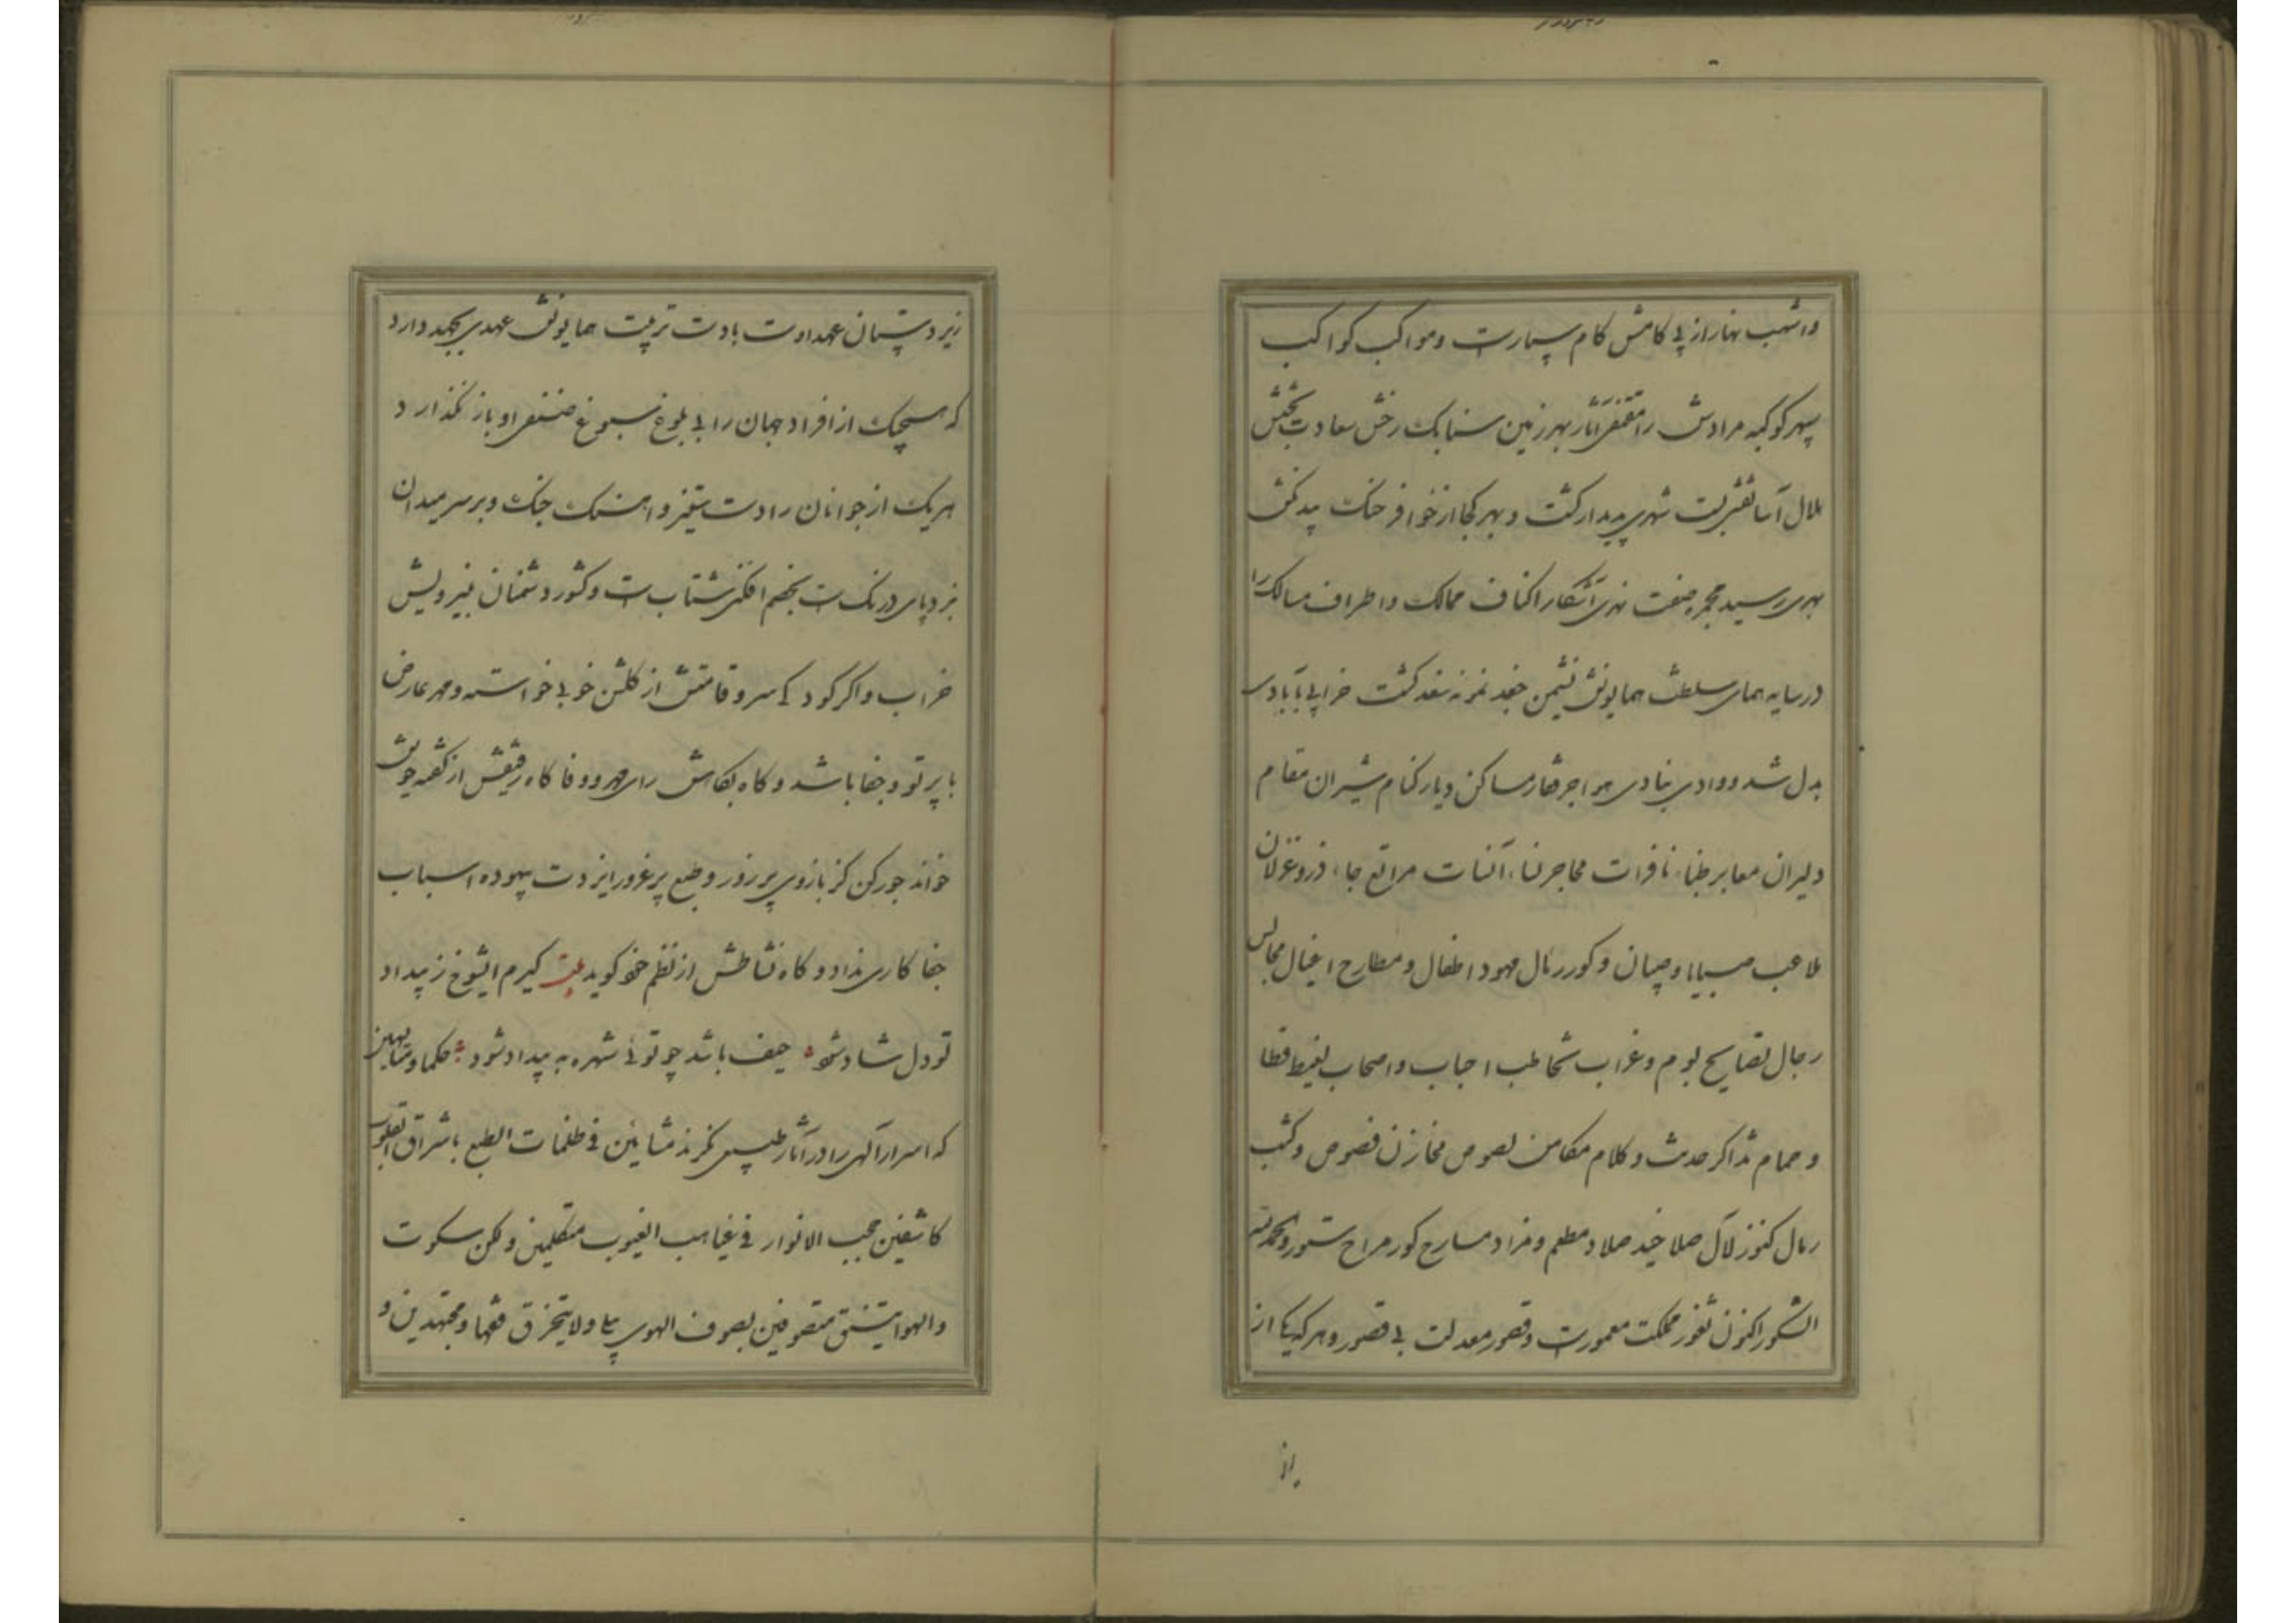 واشهب نهار از پی کامش کام سپارست ومواکب کواکب
سپهر کوکبه مرادش را مقتفی آثار بهر زمین سنابک رخش سعادت بخش
هلال آسا نقش بست شهری پدیدار کشت و بهر کجا از خوافر خنک
بهری رسید مجره صفت نهری آشکار اکناف ممالک واطراف مسالک را
در سایه همای سلطنت همایونش نشیمن جغد نمونه سغد کشت خرابی بآبادی
بدل شد ووادی بنادی هواجر قفار مساکن ودیار کنام شیران مقام
دلیران معابر ظباء نافرات محاجر نساء آنسات مراتع جاء ذر وغزلان
ملاعب صبایا وصبیان وکور رئال مهود اطفال ومطارح اغیال مجالس
رجال تصایح بوم وغراب تخاطب احباب واصحاب لغیط قطا
وحمام تذاکر حدیث وکلام مکامن لصوص مخازن فصوص وکثب
رمال کنوز لآل صلاخید صلاد مطعم ومزاد مسارح کور مراح ستور والحمدلله
الشکور اکنون ثغور مملکت معمورست وقصور معدلت بی قصور وهرکه یکی از
از
زیردستان عهد اوست بادست تربیت همایونش عهدی بجهد دارد
که هیچیک از افراد جهان را بی بلوغ نسبوغ صنفی او باز نکذارد
هر یک از جوانان را دست ستیز و اهنک جنک وبر سر میدان
نبرد پای درنک است بخصم افکنی شتاب است وکشور دشمنان بنیرویش
خراب واکر کودکی سرو قامتش از کلشن خوبی خواسته ومهر عارض
با پرتو وجفا باشد وکاه بکاهش رای مهر ووفا کاه رفیقش از
خواند جور کن کز بازوی پر زور وطبع پر غرور ایزدت بیهوده اسباب
جفا کاری نداد وکاه نشاطش از نظم خود کوید بیت کیرم ایشوخ ز بیداد
تو دل شاد شود حیف باشد چو توئی شهره به بیداد شود حکما ومتالهین
که اسرار آلهی را در آثار طبیعی نکرند مشایین فی ظلمات الطبع باشراق القلوب
کاشفین حجب الانوار فی غیاهب الغیوب متکلمین ولکن سکوت
والهوا یتنشق متصوفین بصوف الهوی ولا یتخرق فقها ومجتهدین و